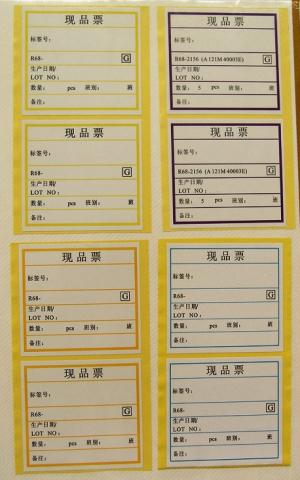 现品票
标签号：
R68- G
生产日期/
LOT NO：
数量： pcs 班别： 班
备注：
现品票
标签号：
R68-2156 (A121M40003E) G
生产日期/
LOT NO：
数量： 5 pcs 班别： 班
备注：
现品票
标签号：
R68- G
生产日期/
LOT NO：
数量： pcs 班别： 班
备注：
现品票
标签号：
R68-2156 (A121M40003E) G
生产日期/
LOT NO：
数量： 5 pcs 班别： 班
备注：
现品票
标签号：
R68- G
生产日期/
LOT NO：
数量： pcs 班别： 班
备注：
现品票
标签号：
R68- G
生产日期/
LOT NO：
数量： pcs 班别： 班
备注：
现品票
标签号：
R68- G
生产日期/
LOT NO：
数量： pcs 班别： 班
备注：
现品票
标签号：
R68- G
生产日期/
LOT NO：
数量： pcs 班别： 班
备注：